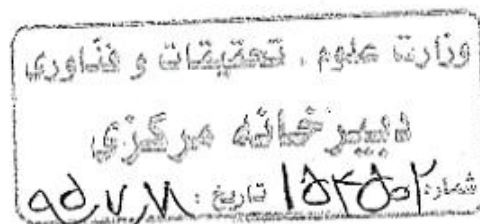 وزارت علوم ، تحقیقات و فنّاوری
دبیرخانه مرکزی
شماره: تاریخ: